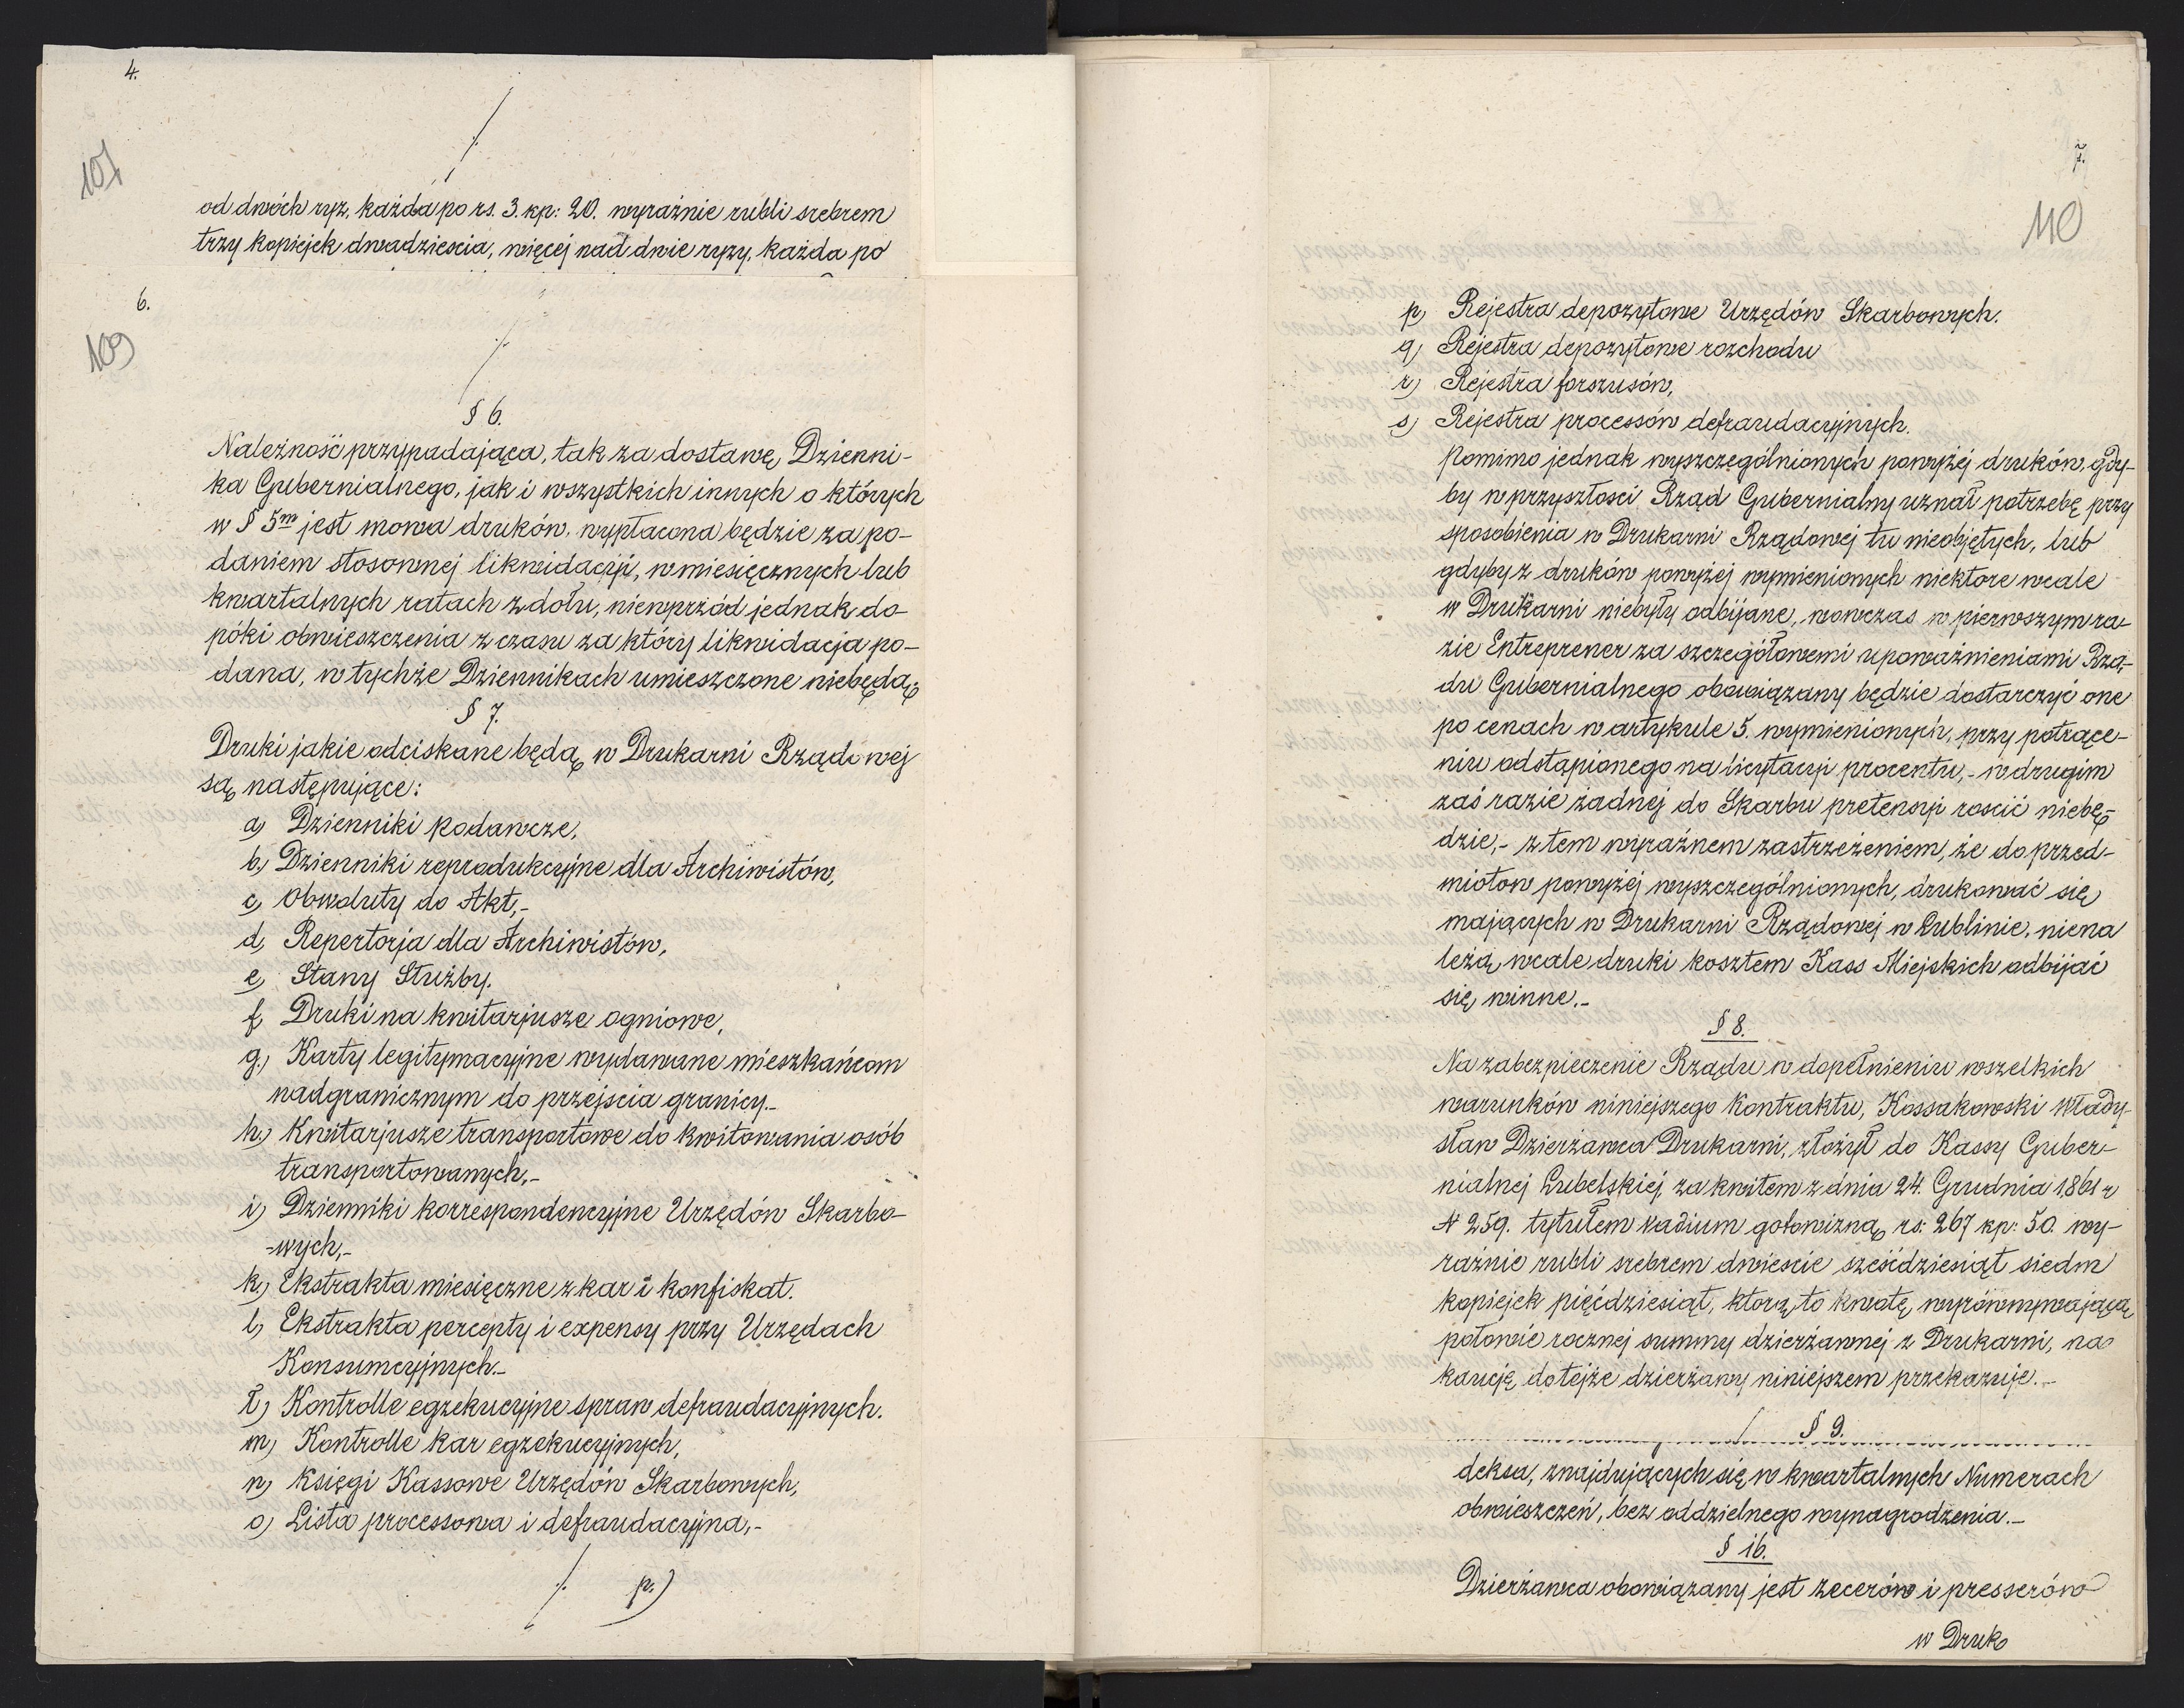 4.
107
od dwóch ryz, każda po rs. 3. kp: 20. wyraźnie rubli srebrem
trzy kopiejek dwadzieścia, więcej nad dwie ryzy, każda po
6.
109
§ 6.
Należność przypadająca, tak za dostawę Dzienni-
ka Gubernialnego, jak i wszystkich innych o których
w § 5m jest mowa druków, wypłacona będzie za po-
daniem stosownej likwidacyi, w miesięcznych lub
kwartalnych ratach z dołu, niewprzód jednak do-
póki obwieszczenia z czasu za który likwidacja po-
dana, w tychże Dziennikach umieszczone niebędą.
§ 7.
Druki jakie odciskane będą w Drukarni Rządowej
są następujące:
a) Dzienniki podawcze,
b) Dzienniki reprodukcyjne dla Archiwistów,
c) Obwoluty do Akt,-
d) Repertorja dla Archiwistów,
e) Stany Służby.
f) Druki na kwitarjusze ogniowe,
g.) Karty legitymacyjne wydawane mieszkańcom
nadgranicznym do przejścia granicy.-
h.) Kwitarjusze transportowe do kwitowania osób
transportowanych,-
i) Dzienniki korrespondencyjne Urzędów Skarbo-
-wych,-
k) Ekstrakta miesięczne z kar i konfiskat.
l) Ekstrakta percepty i expensy przy Urzędach
Konsumcyjnych.-
ł) Kontrolle egzekucyjne spraw defraudacyjnych.
m) Kontrolle kar egzekucyjnych,
n) Księgi Kassowe Urzędów Skarbowych,
o) Lista processowa i defraudacyjna,-
./. p.)
7.
110
p) Rejestra depozytowe Urzędów Skarbowych.
q) Rejestra depozytowe rozchodu
r) Rejestra forszusów,
s) Rejestra processów defraudacyjnych.
Pomimo jednak wyszczególnionych powyżej druków, gdy-
by w przyszłości Rząd Gubernialny uznał potrzebę przy
sposobienia w Drukarni Rządowej tu nieobjętych, lub
gdyby z druków powyżej wymienionych niektore wcale
w Drukarni niebyły odbijane, wowczas w pierwszym ra-
zie Entreprener za szczegółowemi upoważnieniami Rzą-
du Gubernialnego obowiązany będzie dostarczyć one
po cenach w artykule 5. wymienionych, przy potrące-
niu odstąpionego na licytacyi procentu,- w drugim
zaś razie żadnej do Skarbu pretensyi rościć niebę-
dzie,- z tem wyraźnem zastrzeżeniem, że do przed-
miotow powyżej wyszczególnionych, drukować się
mających w Drukarni Rządowej w Lublinie, niena
leżą wcale druki kosztem Kass Miejskich odbijać
się winne.-
§ 8.
Na zabezpieczenie Rządu w dopełnieniu wszelkich
warunków niniejszego Kontraktu, Kossakowski Włady-
sław Dzierżawca Drukarni, złożył do Kassy Guber-
nialnej Lubelskiej, za kwitem z dnia 24. Grudnia 1861 r
N 259. tytułem vadium gotowizną rs: 267 kp: 50. wy-
raźnie rubli srebrem dwieście sześćdziesiąt siedm
kopiejek pięćdziesiąt, ktorą to kwotę, wyrównywającą
połowie rocznej summy dzierżawnej z Drukarni, na
kaucję do tejże dzierżawy niniejszem przekazuje.-
§ 9.
deksa, znajdujących się w kwartalnych Numerach
obwieszczeń, bez oddzielnego wynagrodzenia.-
§ 16.
Dzierżawca obowiązany jest zecerów i presserów
w Druk